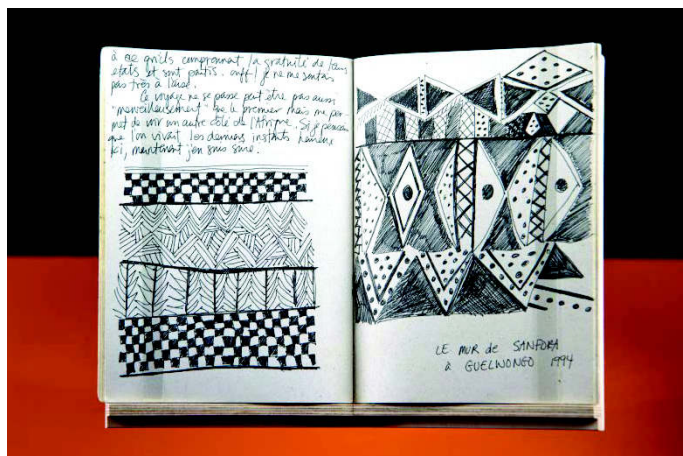 à ce qu'ils comprennent la gratuité de leurs
états et sont partis. Ouff! je ne me sentais
pas très à l'aise.
Ce voyage ne se passe peut être pas aussi
"merveilleusement" que le premier mais me per
met de voir un autre côté de l'Afrique. Si je pensais
que l'on vivait les derniers instants
ici, maintenant j'en suis sûre.
LE MUR de SANFORA
à GUELWONGO 1994